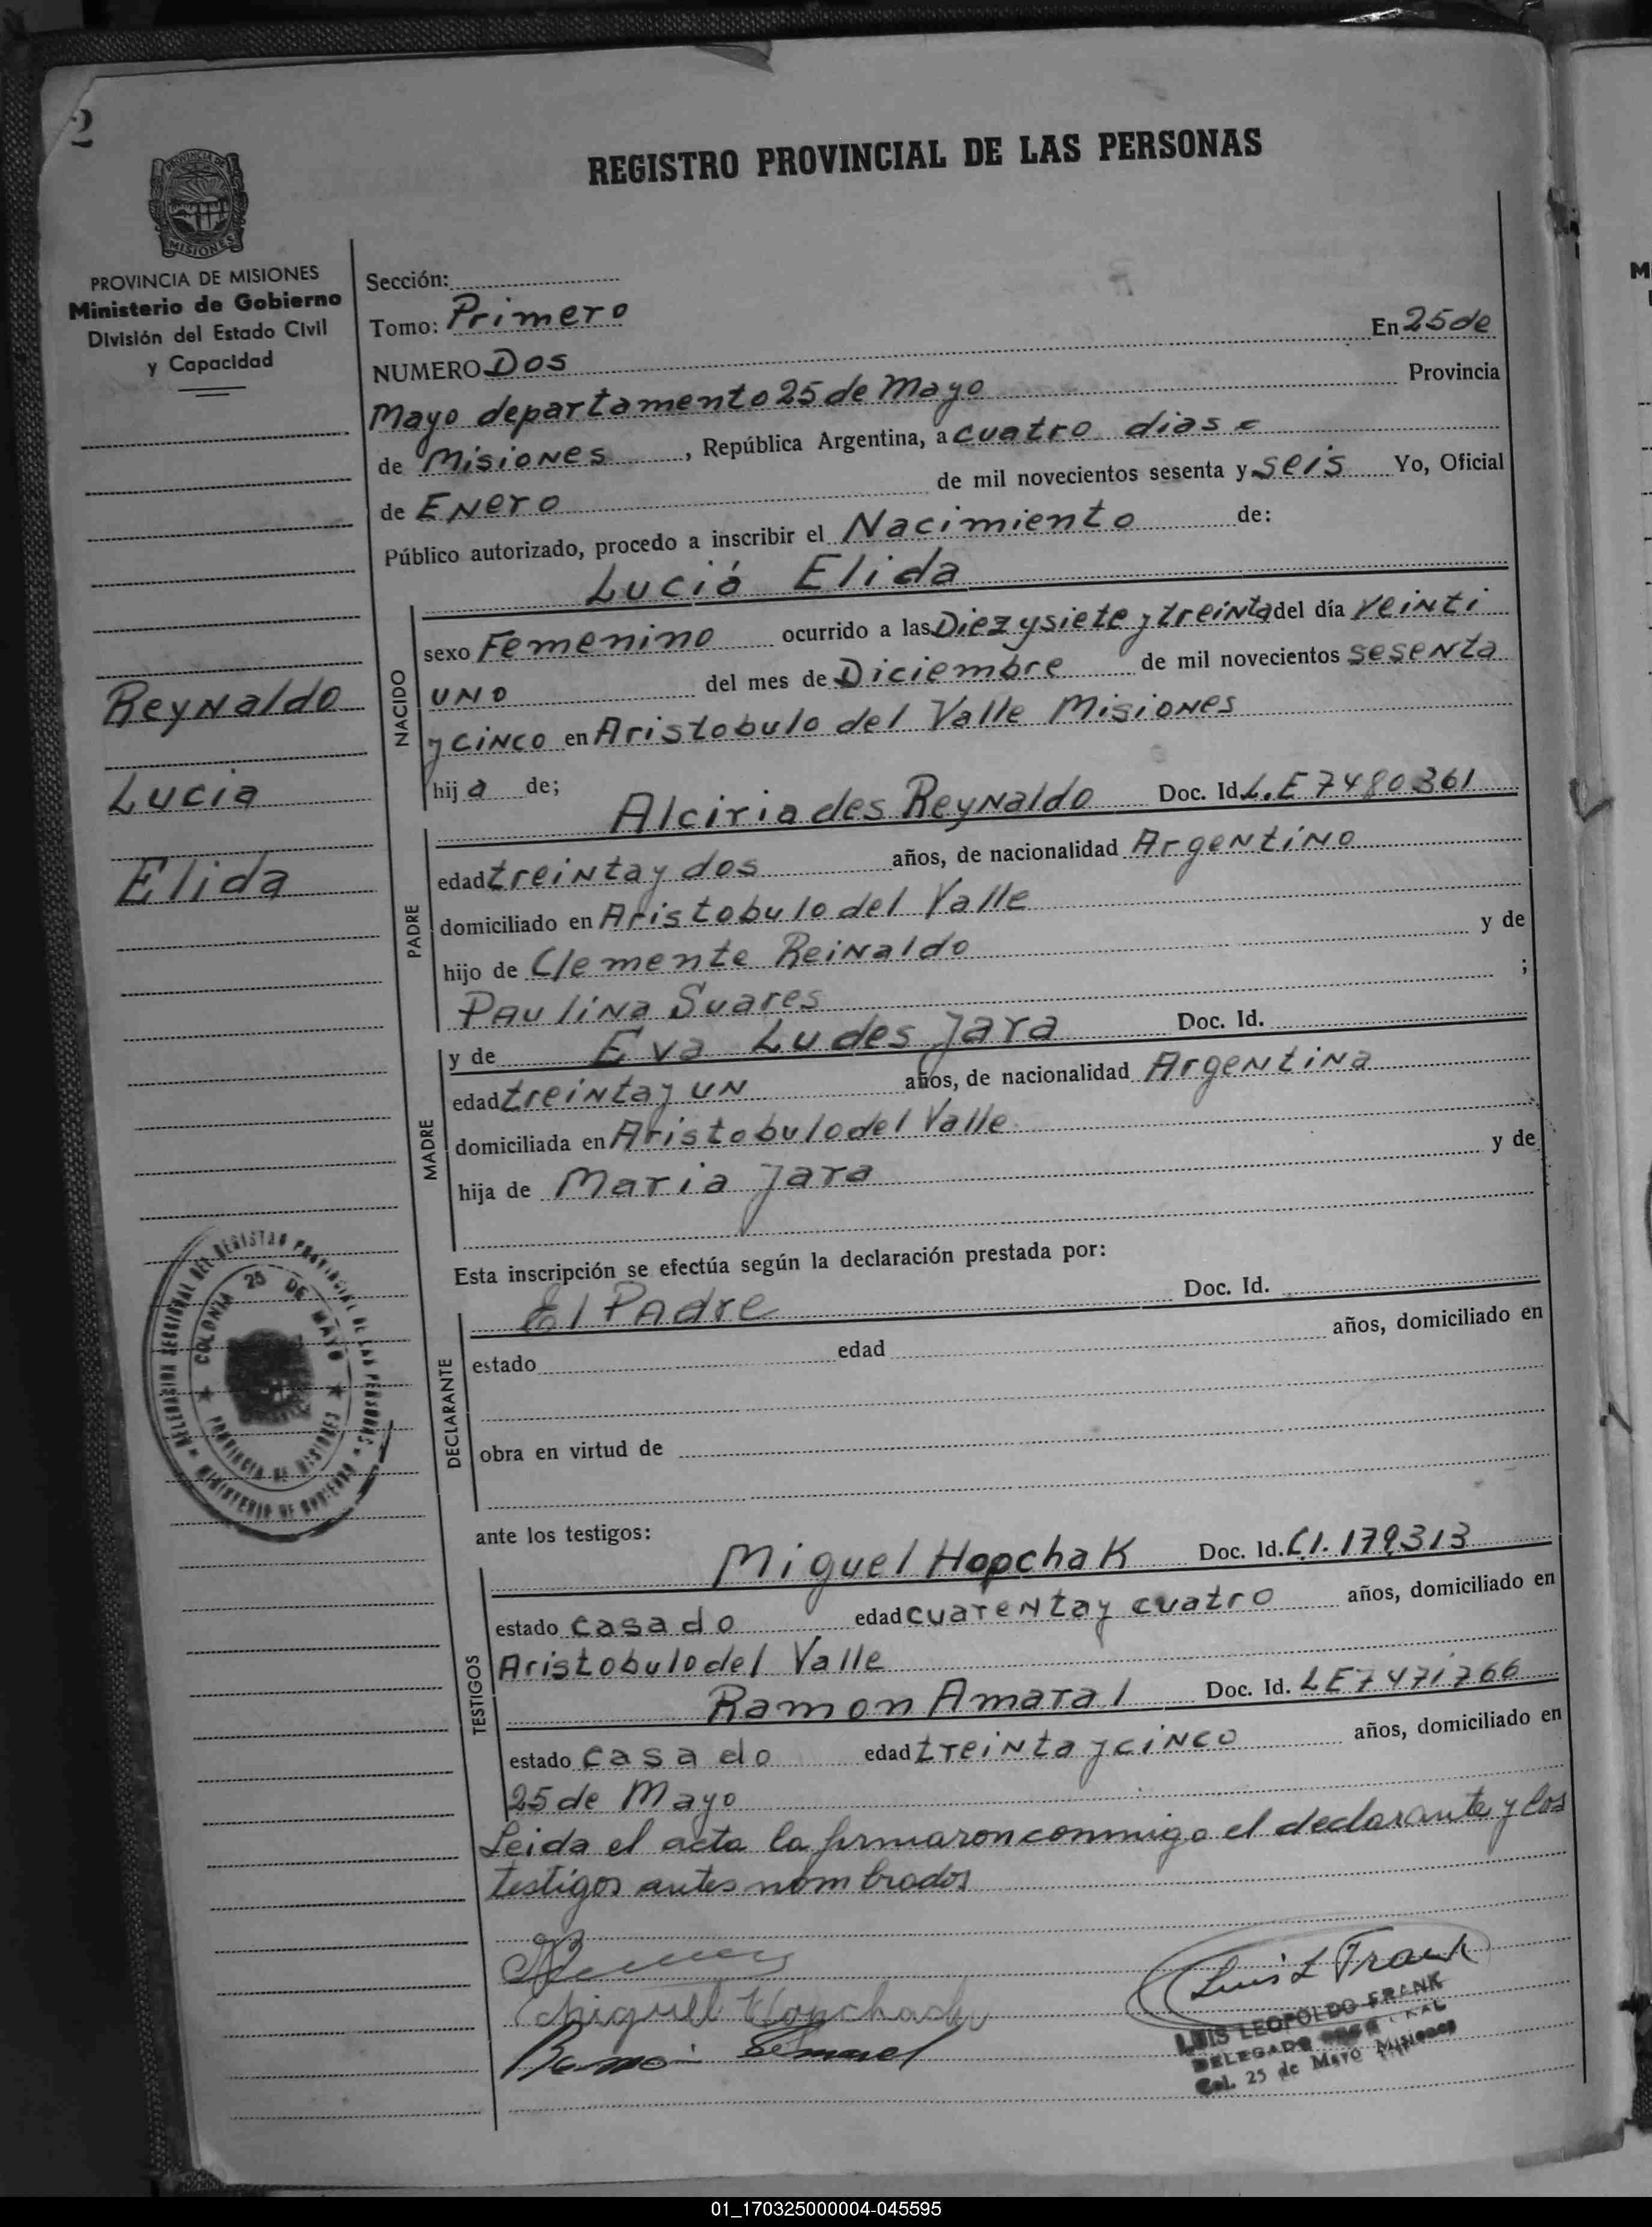 2
REGISTRO PROVINCIAL DE LAS PERSONAS
PROVINCIA DE
MISIONES
PROVINCIA DE MISIONES
Ministerio de Gobierno
División del Estado Civil
y Capacidad
Reynaldo
Lucia
Elida
Sección:
Tomo: Primero
NUMERO Dos En 25 de
Mayo departamento 25 de Mayo Provincia
de Misiones, República Argentina, a cuatro dias
de Enero de mil novecientos sesenta y seis Yo, Oficial
Público autorizado, procedo a inscribir el Nacimiento de:
Lució Elida
NACIDO
sexo Femenino ocurrido a las Diez y siete y treinta del día veinti
uno del mes de Diciembre de mil novecientos sesenta
y cinco en Aristobulo del Valle Misiones
hija de;
Alciriades Reynaldo Doc. Id L.E 7480361
PADRE
edad treinta y dos años, de nacionalidad Argentino
domiciliado en Aristobulo del Valle
hijo de Clemente Reinaldo y de
Paulina Suares ;
y de Eva Ludes Jara Doc. Id.
MADRE
edad treinta y un años, de nacionalidad Argentina
domiciliada en Aristobulo del Valle
hija de Maria Jara y de
Esta inscripción se efectúa según la declaración prestada por:
El Padre Doc. Id.
DECLARANTE
estado edad años, domiciliado en
obra en virtud de
DELEGACION SECCIONAL DEL REGISTRO PROVINCIAL DE LAS PERSONAS
COLONIA 25 DE MAYO
PROVINCIA DE MISIONES
MINISTERIO DE GOBIERNO
ante los testigos:
Miguel Hopchak Doc. Id. C.I. 179313
TESTIGOS
estado casado edad cuarenta y cuatro años, domiciliado en
Aristobulo del Valle
Ramon Amaral Doc. Id. LE 7471766
estado casado edad treinta y cinco años, domiciliado en
25 de Mayo
Leida el acta la firmaron conmigo el declarante y los
testigos antes nombrados
Miguel Hopchack
Luis L Frank
LUIS LEOPOLDO FRANK
DELEGADO
Col. 25 de Mayo Misiones
01_170325000004-045595